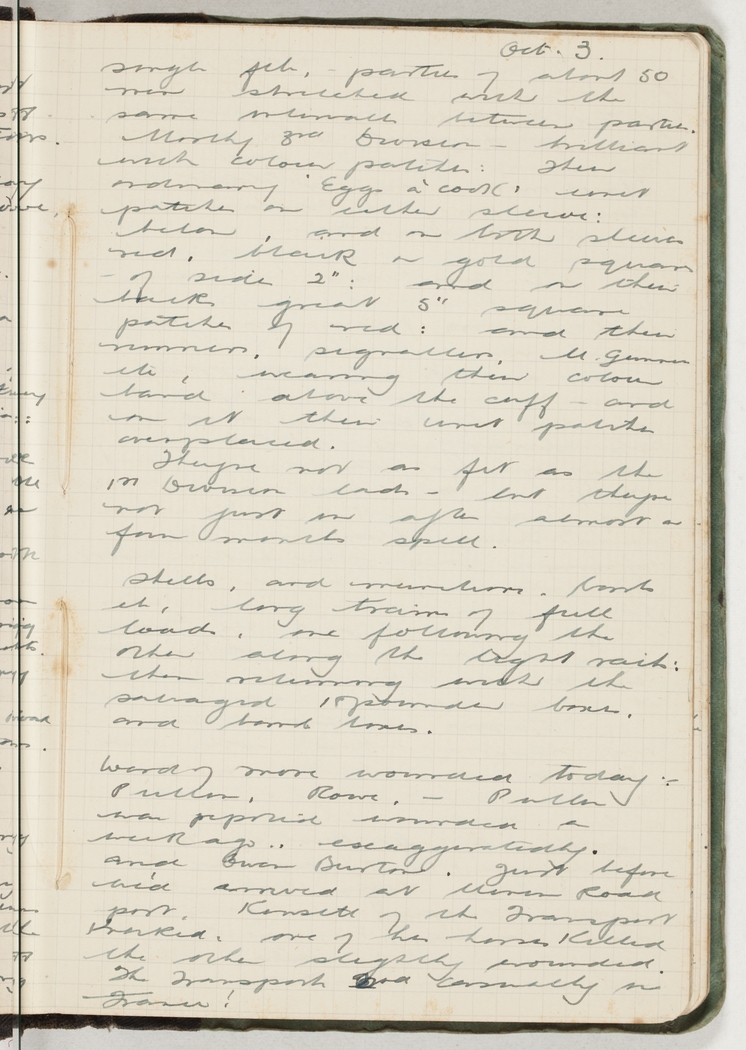 Oct. 3.
single file, - parties of about 50
men stretched with the
same intervals between parties.
Mostly 3rd Division - brilliant
with colour patches: Their
ordinary 'Eggs a cook' unit
patches on either sleeve:
below, and on both sleeves
red, black or gold squares
- of side 2": and on their
backs great 5" square
patches of red: and then
runners, signallers, M. Gunners
etc, wearing their colour
band above the cuff - and
on it their unit patches
overplaced.
They're not as fit as the
1st Division lads - but they're
not just in after almost a
four months spell.
Shells, and munitions, bombs
etc, long trains of full
loads, one following the
other along the light rail:
then returning with the
salvaged 18pounder boxes,
and bomb boxes.
Word of more wounded today:-
Pullen, Rowe, - Pullen
was reported wounded a
week ago.. exaggeratedly.
and Evan Burton. Just before
we'd arrived at Menin Road
post, of the Transport
knocked: one of his horses killed
the other slightly wounded.
The Transport 2nd casualty in
France!